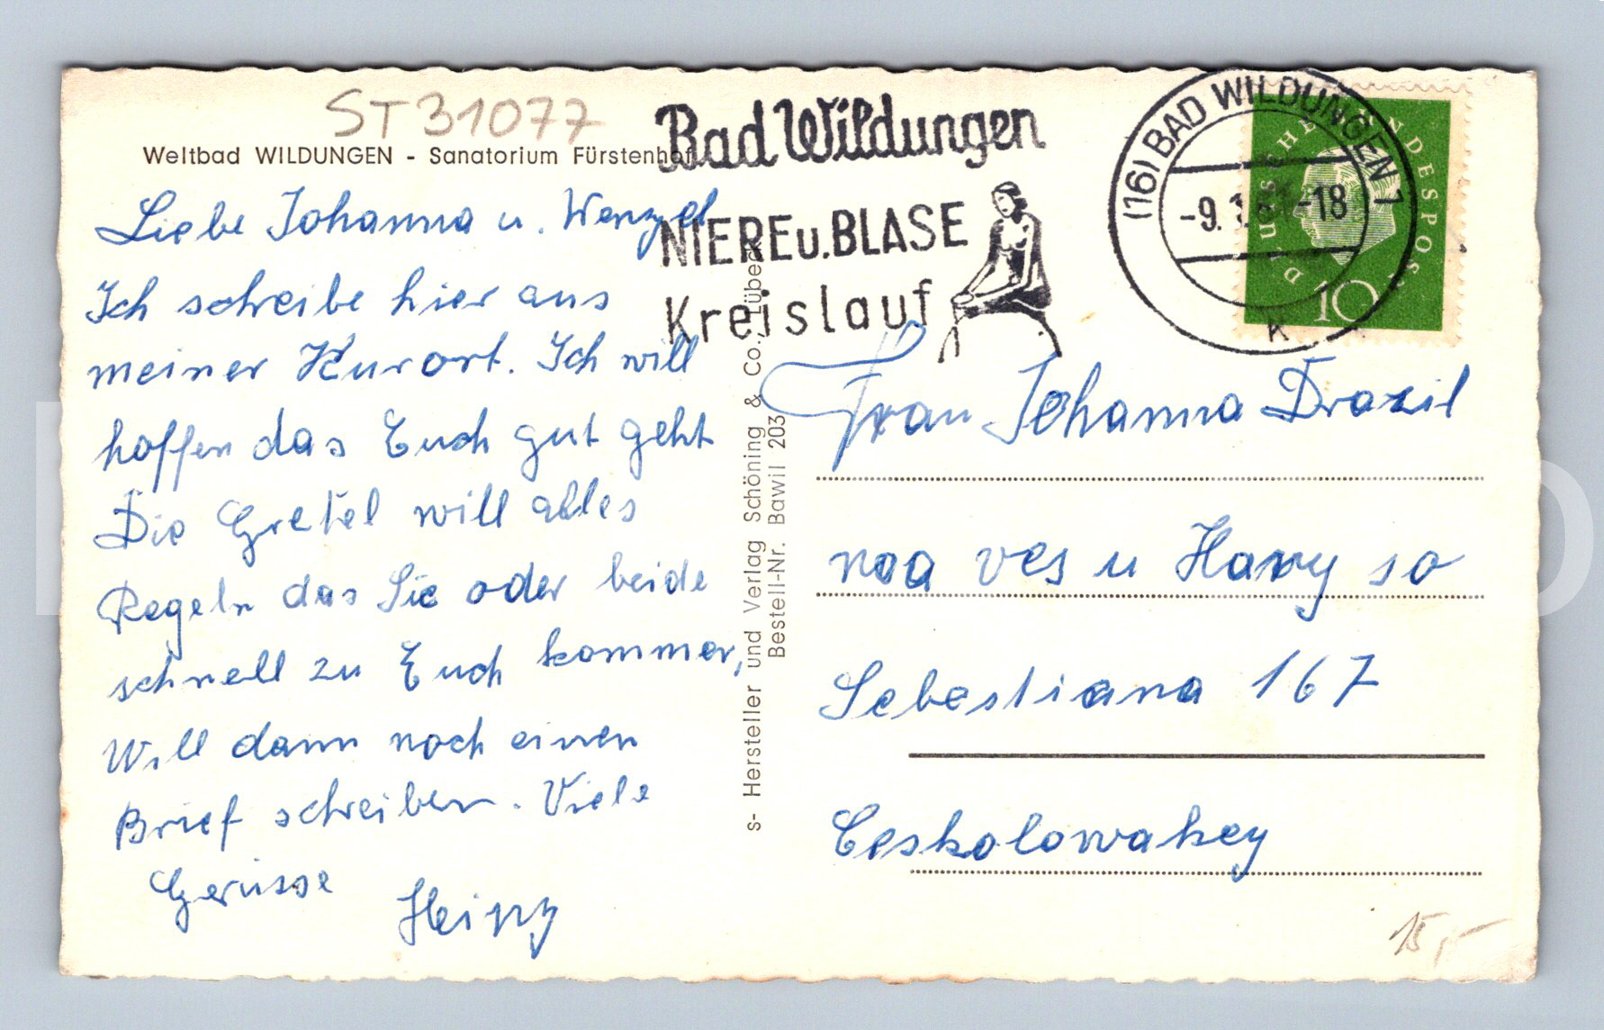 ST31077
Weltbad WILDUNGEN - Sanatorium Fürstenhof
Liebe Johanna u. Wenzel
Ich schreibe hier aus
meiner Kurort. Ich will
hoffen das Euch gut geht
Die Gretel will alles
Regeln das Sie oder beide
schnell zu Euch kommen,
Will dann noch einen
Brief schreiben. Viele
Gerüsse Heinz
s- Hersteller und Verlag Schöning & Co., Lübeck
Bestell-Nr. Bawil 203
Bad Wildungen
NIERE u. BLASE
Kreislauf
(16) BAD WILDUNGEN 1
-18
K
DEUTSCHE BUNDESPOST
10
Frau Johanna Drazil
noa ves u Hory so
Sebestiana 167
Ceskolowakey
15,-